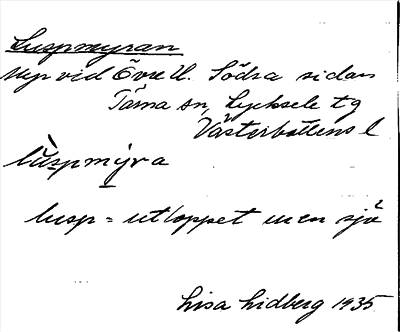 Luspmyran
Myr vid Övre U. Södra sidan
Tärna sn, Lycksele tg
Västerbottens l
lùspmýra
lusp = utloppet ur en sjö
Lisa Lidberg 1935